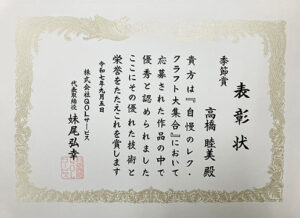 表彰状
季節賞
高橋睦美殿
貴方は『自慢のレク・
クラフト大集合』において
応募された作品の中で
優秀と認められました
ここにその優れた技術と
栄誉をたたえこれを賞します
令和七年九月五日
株式会社QOLサービス
代表取締役 妹尾弘幸